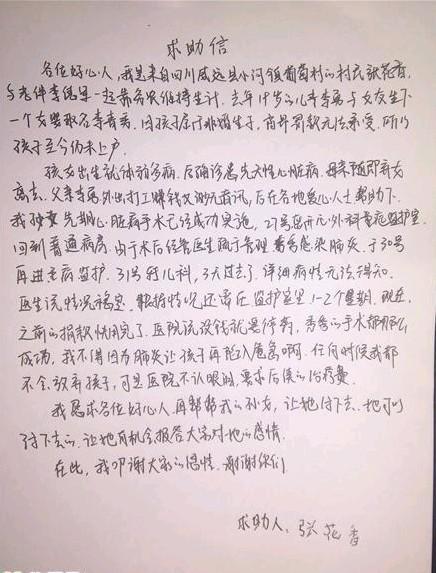 求助信
各位好心人，我是来自四川威远县小河镇葡萄村的村民张花香，
与老伴李 是一起靠务农维持生计．去年17岁的儿子李 与女友生下
一个女婴取名李 ．因孩子属于非婚生子，高昂罚款无法承受．所以
孩子至今仍未上户．
孩女出生就体弱多病．后确诊患先天性心脏病．母亲随即弃女
离去．父亲李 外出打工赚钱又渺无音讯，后在各地爱心人士帮助下．
我孙女先期心脏病手术已经成功实施，27号已 外科重症监护室
回到普通病房．由于术后经管医生疏于管理 感染肺炎．于30号
再进重病监护．31号转儿科，3天过去了．详细病情无法得知．
医生说情况稳定．根据情况还需在监护室呈1-2个星期．现在，
之前的捐款快用完了．医院说没钱就是停药，秀秀的手术都那么
成功，我不得因为肺炎让孩子再陷入危急啊．任何时候我都
不会放弃孩子，可是医院不认眼泪，要求后续的治疗费．
我恳求各位好心人再帮帮我的孙女，让她活下去．她可以
活下去的．让她有机会报答大家对她的感情．
在此，我叩谢大家的恩情．谢谢你们
求助人：张花香